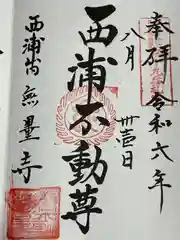 奉拝 令和六年
八月 卅壱日
西浦不動尊
西浦山 無量寺